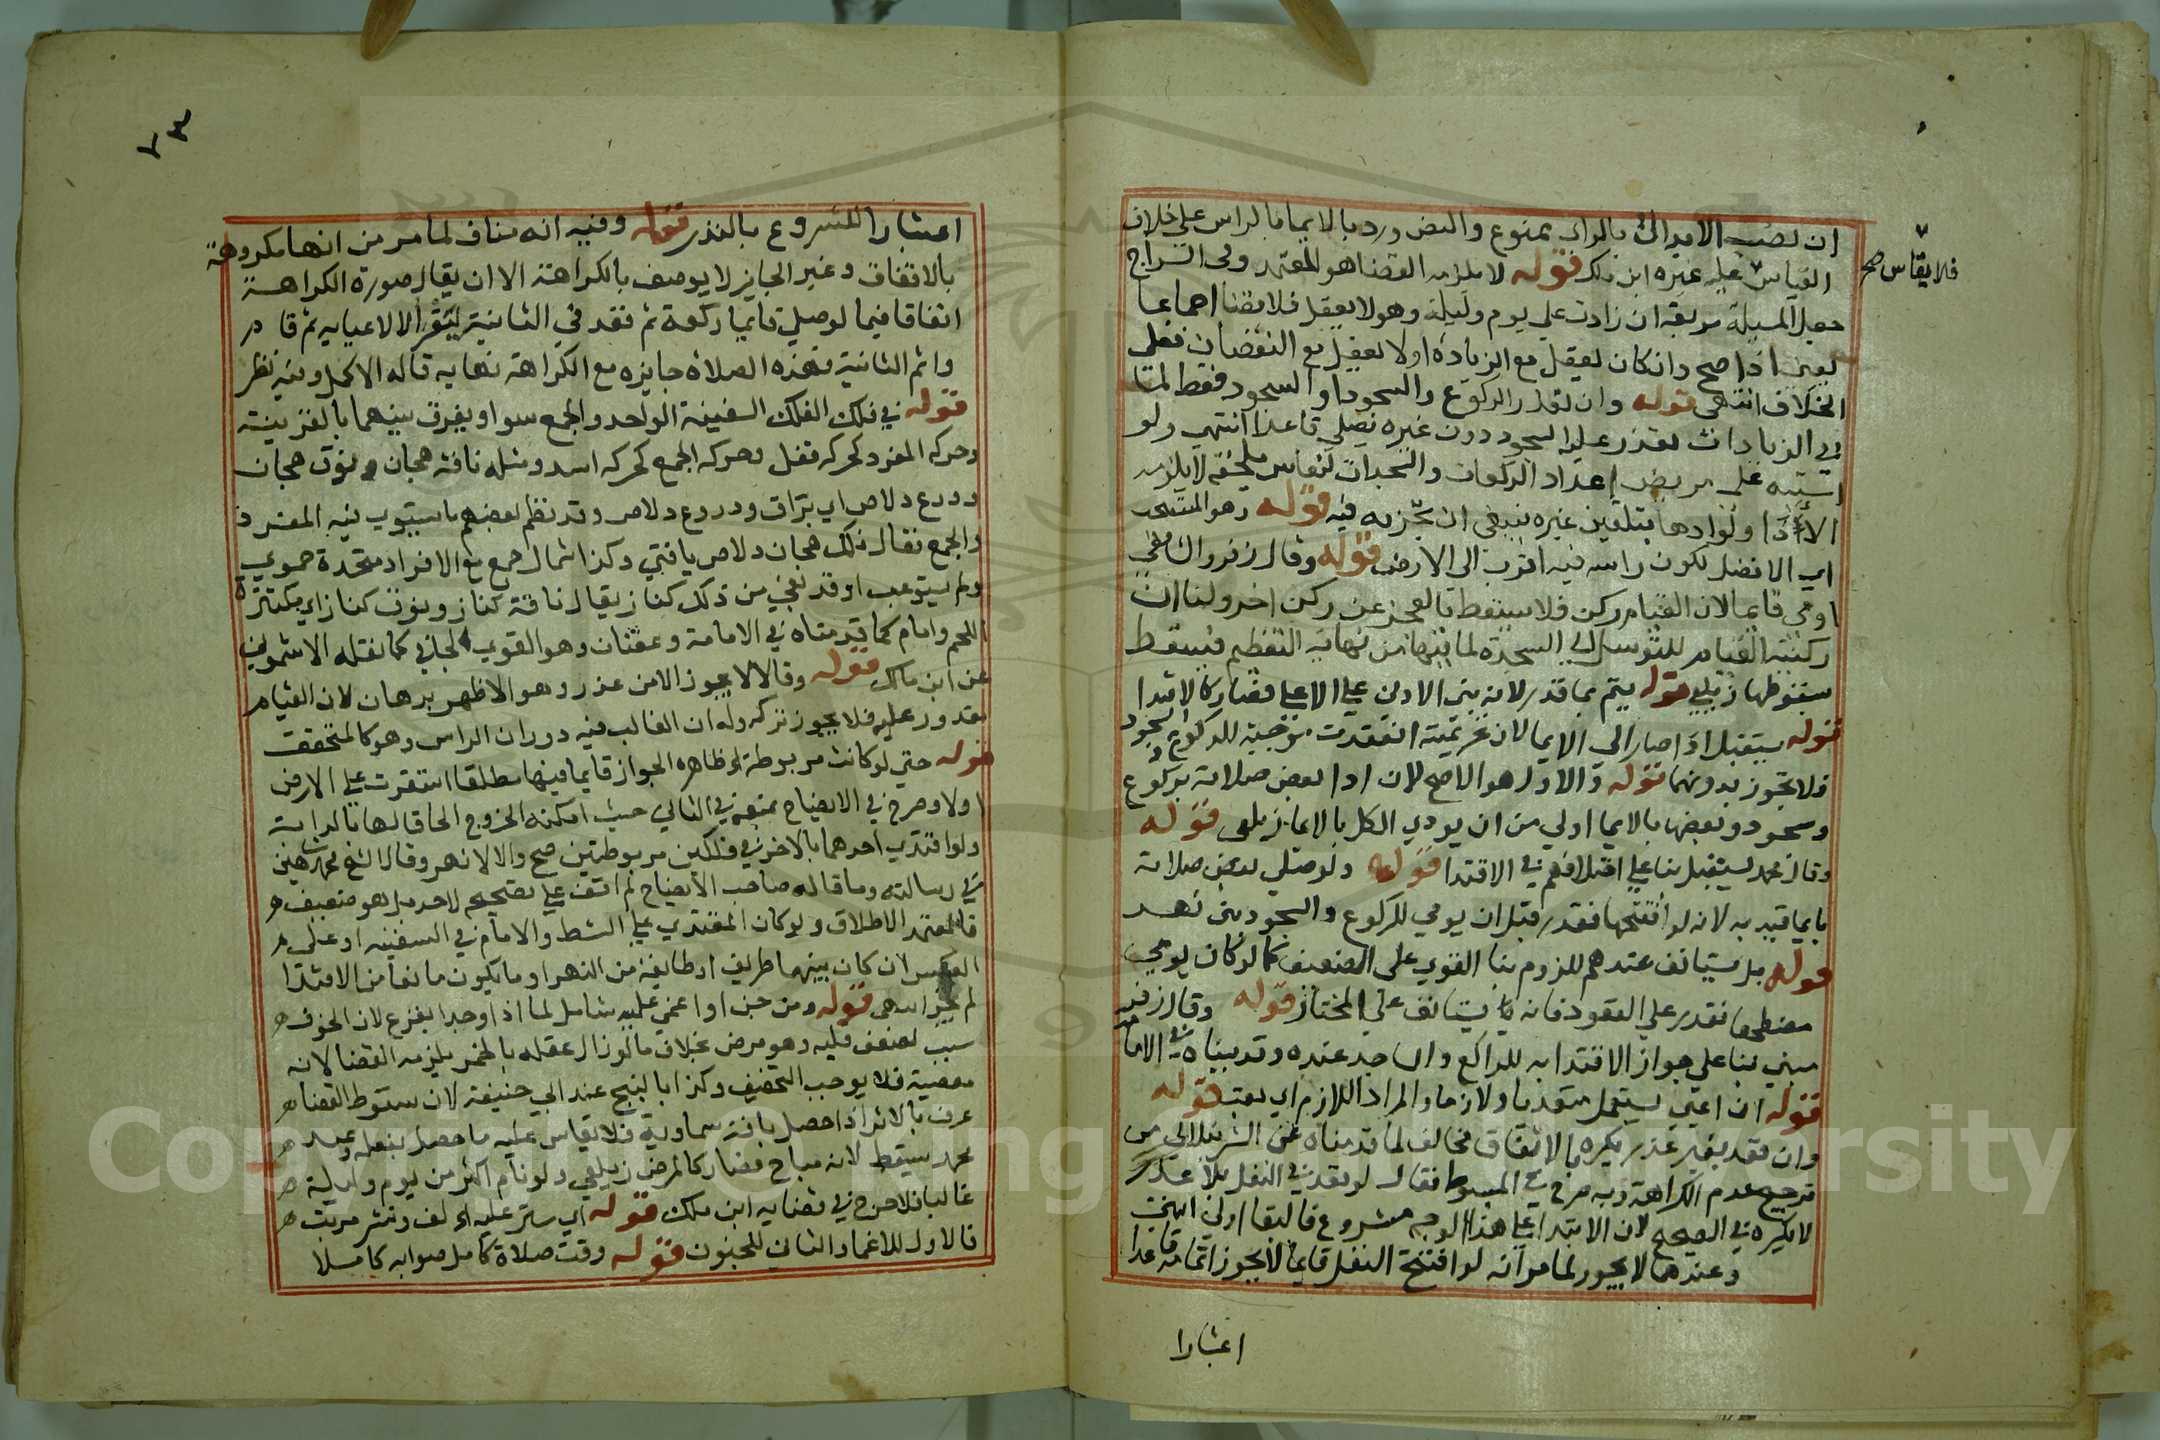 ان نصب الابدال بالراى ممنوع والنص ورد بالايما بالراس على خلاف
القياس عليه غيره ابن ملك قوله لا يلزمه القضا هو المعتمد وفى السراج
فلا يقاس صح
جعل المسيلة مربعة ان زادت على يوم وليلة وهو لا يعقل فلا قضا اجماعا
يعنى اذا صح وان كان يعقل مع الزيادة اولا يعقل مع النقصان فعلى
الخلاف انتهى قوله وان تعذر الركوع والسجود او السجود فقط لما
فى الزيادات تعذر عليه السجود دون غيره يصلى قاعدا انتهى ولو
اشتبه على مريض اعداد الركعات والسجدات لنعاس يلحقه لا يلزمه
الادا ولو اداها بتلقين غيره ينبغى ان يجزيه قنيه قوله وهو المستحب
اى الافضل لكون راسه فيه اقرب الى الارض قوله وقال زفر وان
اومى قايما لان القيام ركن فلا يسقط بالعجز عن ركن اخر ولنا ان
ركنية القيام للتوسل الى السجدة لما فيها من نهاية التعظيم فيسقط
بسقوطها زيلعى قوله يتم بما قدر لانه بنى الادنى على الاعلى فصار كالاقتدا
قوله يستقبل اذا صار الى الايما لان تحريمته انعقدت موجبة للركوع والسجود
فلا تجوز بدونهما قوله والاول هو الاصح لان اداء بعض صلاته بركوع
وسجود وبعضها بالايما اولى من ان يودى الكل بالايما زيلعى قوله
وقال محمد يستقبل بنا على اختلافهم فى الاقتدا قوله ولو صلى بعض صلاته
بايما قيد به لانه لو افتتحها فقدر قبل ان يومى للركوع والسجود بنى نهر
قوله بل يستانف عندهم للزوم بنا القوى على الضعيف كما لو كان يومى
مضطجعا فقدر على القعود فانه يستانف على المختار قوله وقال زفر
يبنى بنا على جواز الاقتدا به للراكع والساجد عنده وقد بيناه فى الامامة
قوله ان اعيى يستعمل متعديا ولازما والمراد اللازم اى تعب قوله
وان قعد بغير عذر يكره بالاتفاق مخالف لما قدمناه عن الشرنبلالى من
ترجيح عدم الكراهة وبه صرح فى المبسوط فقال لو قعد فى النفل بلا عذر
لا يكره فى الصحيح لان الابتدا على هذا الوجه مشروع فالبقا اولى انتهى
وعندهما لا يجوز لما مر انه لو افتتح النفل قايما لا يجوز اتمامه قاعدا
اعتبارا
٧٣
اعتبارا للشروع بالنذر قوله وفيه انه مناف لما مر من انها مكروهة
بالاتفاق وغير الجايز لا يوصف بالكراهة الا ان يقال صورة الكراهة
اتفاقا فيما لو صلى قايما ركعة ثم قعد فى الثانية ليقرأ لا لاعيايه ثم قام
واتم الثانية فهذه الصلاة جايزه مع الكراهة نهايه قاله الاكمل وفيه نظر
قوله فى فلك الفلك السفينة الواحد والجمع سوا ويفرق بينهما بالقرينة
وحركة المفرد كحركة قفل وحركة الجمع كحركة اسد ومثله ناقة هجان ونوق هجان
ودرع دلاص اى براق ودروع دلاص وقد نظم بعضهم ما يستوى فيه المفرد
والجمع فقال فلك هجان دلاص يا فتى وكذا شمال جمع مع الافراد متحدة حموى
ولم يستوعب اوقد بقى من ذلك كناز يقال ناقة كناز ونوق كناز اى مكتنزة
اللحم وامام كما قدمناه فى الامامة وعفتان وهو القوى الجافى كما نقله الاشمونى
عن ابن مالك قوله وقالا لا يجوز الا من عذر وهو الاظهر برهان لان القيام
مقدور عليه فلا يجوز تركه وله ان الغالب فيه دوران الراس وهو كالمتحقق
قوله حتى لو كانت مربوطة الخ ظاهره الجواز قايما فيها مطلقا استقرت على الارض
اولا وصرح فى الايضاح بمنعه فى الثانى حيث امكنه الخروج الحاقا لها بالدابة
ولو اقتدى احدهما بالاخر فى فلكين مربوطتين صح والا لا نهر وقال الشيخ محمد شاهين
فى رسالته وما قاله صاحب الايضاح لم اقف على تصحيحه لاحد بل هو ضعيف
فالمعتمد الاطلاق ولو كان المقتدى على الشط والامام فى السفينه او على
العكس لان كان بينهما طريق او طايفة من النهر او ما يكون مانعا من الاقتدا
لم يجز انتهى قوله ومن جن او اغمى عليه شامل لما اذا وجد ابفزع لان الخوف
سبب لضعف قلبه وهو مرض بخلاف ما لو زال عقله بالخمر يلزمه القضا لانه
معصية فلا يوجب التخفيف وكذا بالبنج عند ابى حنيفة لان سقوط القضا
عرف بالاثر اذا حصل بافة سماوية فلا يقاس عليه ما حصل بفعله وعند
محمد يسقط لانه مباح فصار كالمرض زيلعى ولو نام اكثر من يوم وليلة
غالبا فلا حرج فى قضايه ابن ملك قوله اى ستر عليه الخ لف ونشر مرتب
فالاول للاغما والثانى للجنون قوله وقت صلاة كامل صوابه كاملا